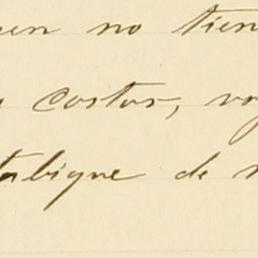 no tien
costas, vo
tabique de